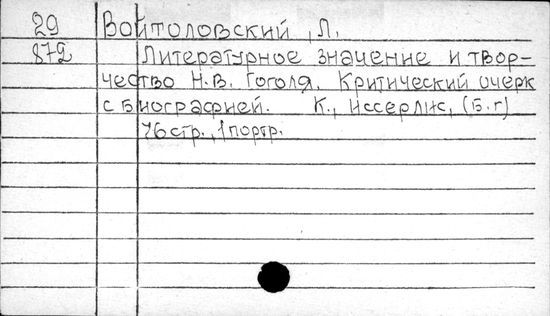 29 Войтоловский, Л.
872 Литературное значение и твор-
чество Н.В. Гоголя. Критический очерк
с биографией. К., Иссерлис, (б.г)
76 стр., 1 портр.